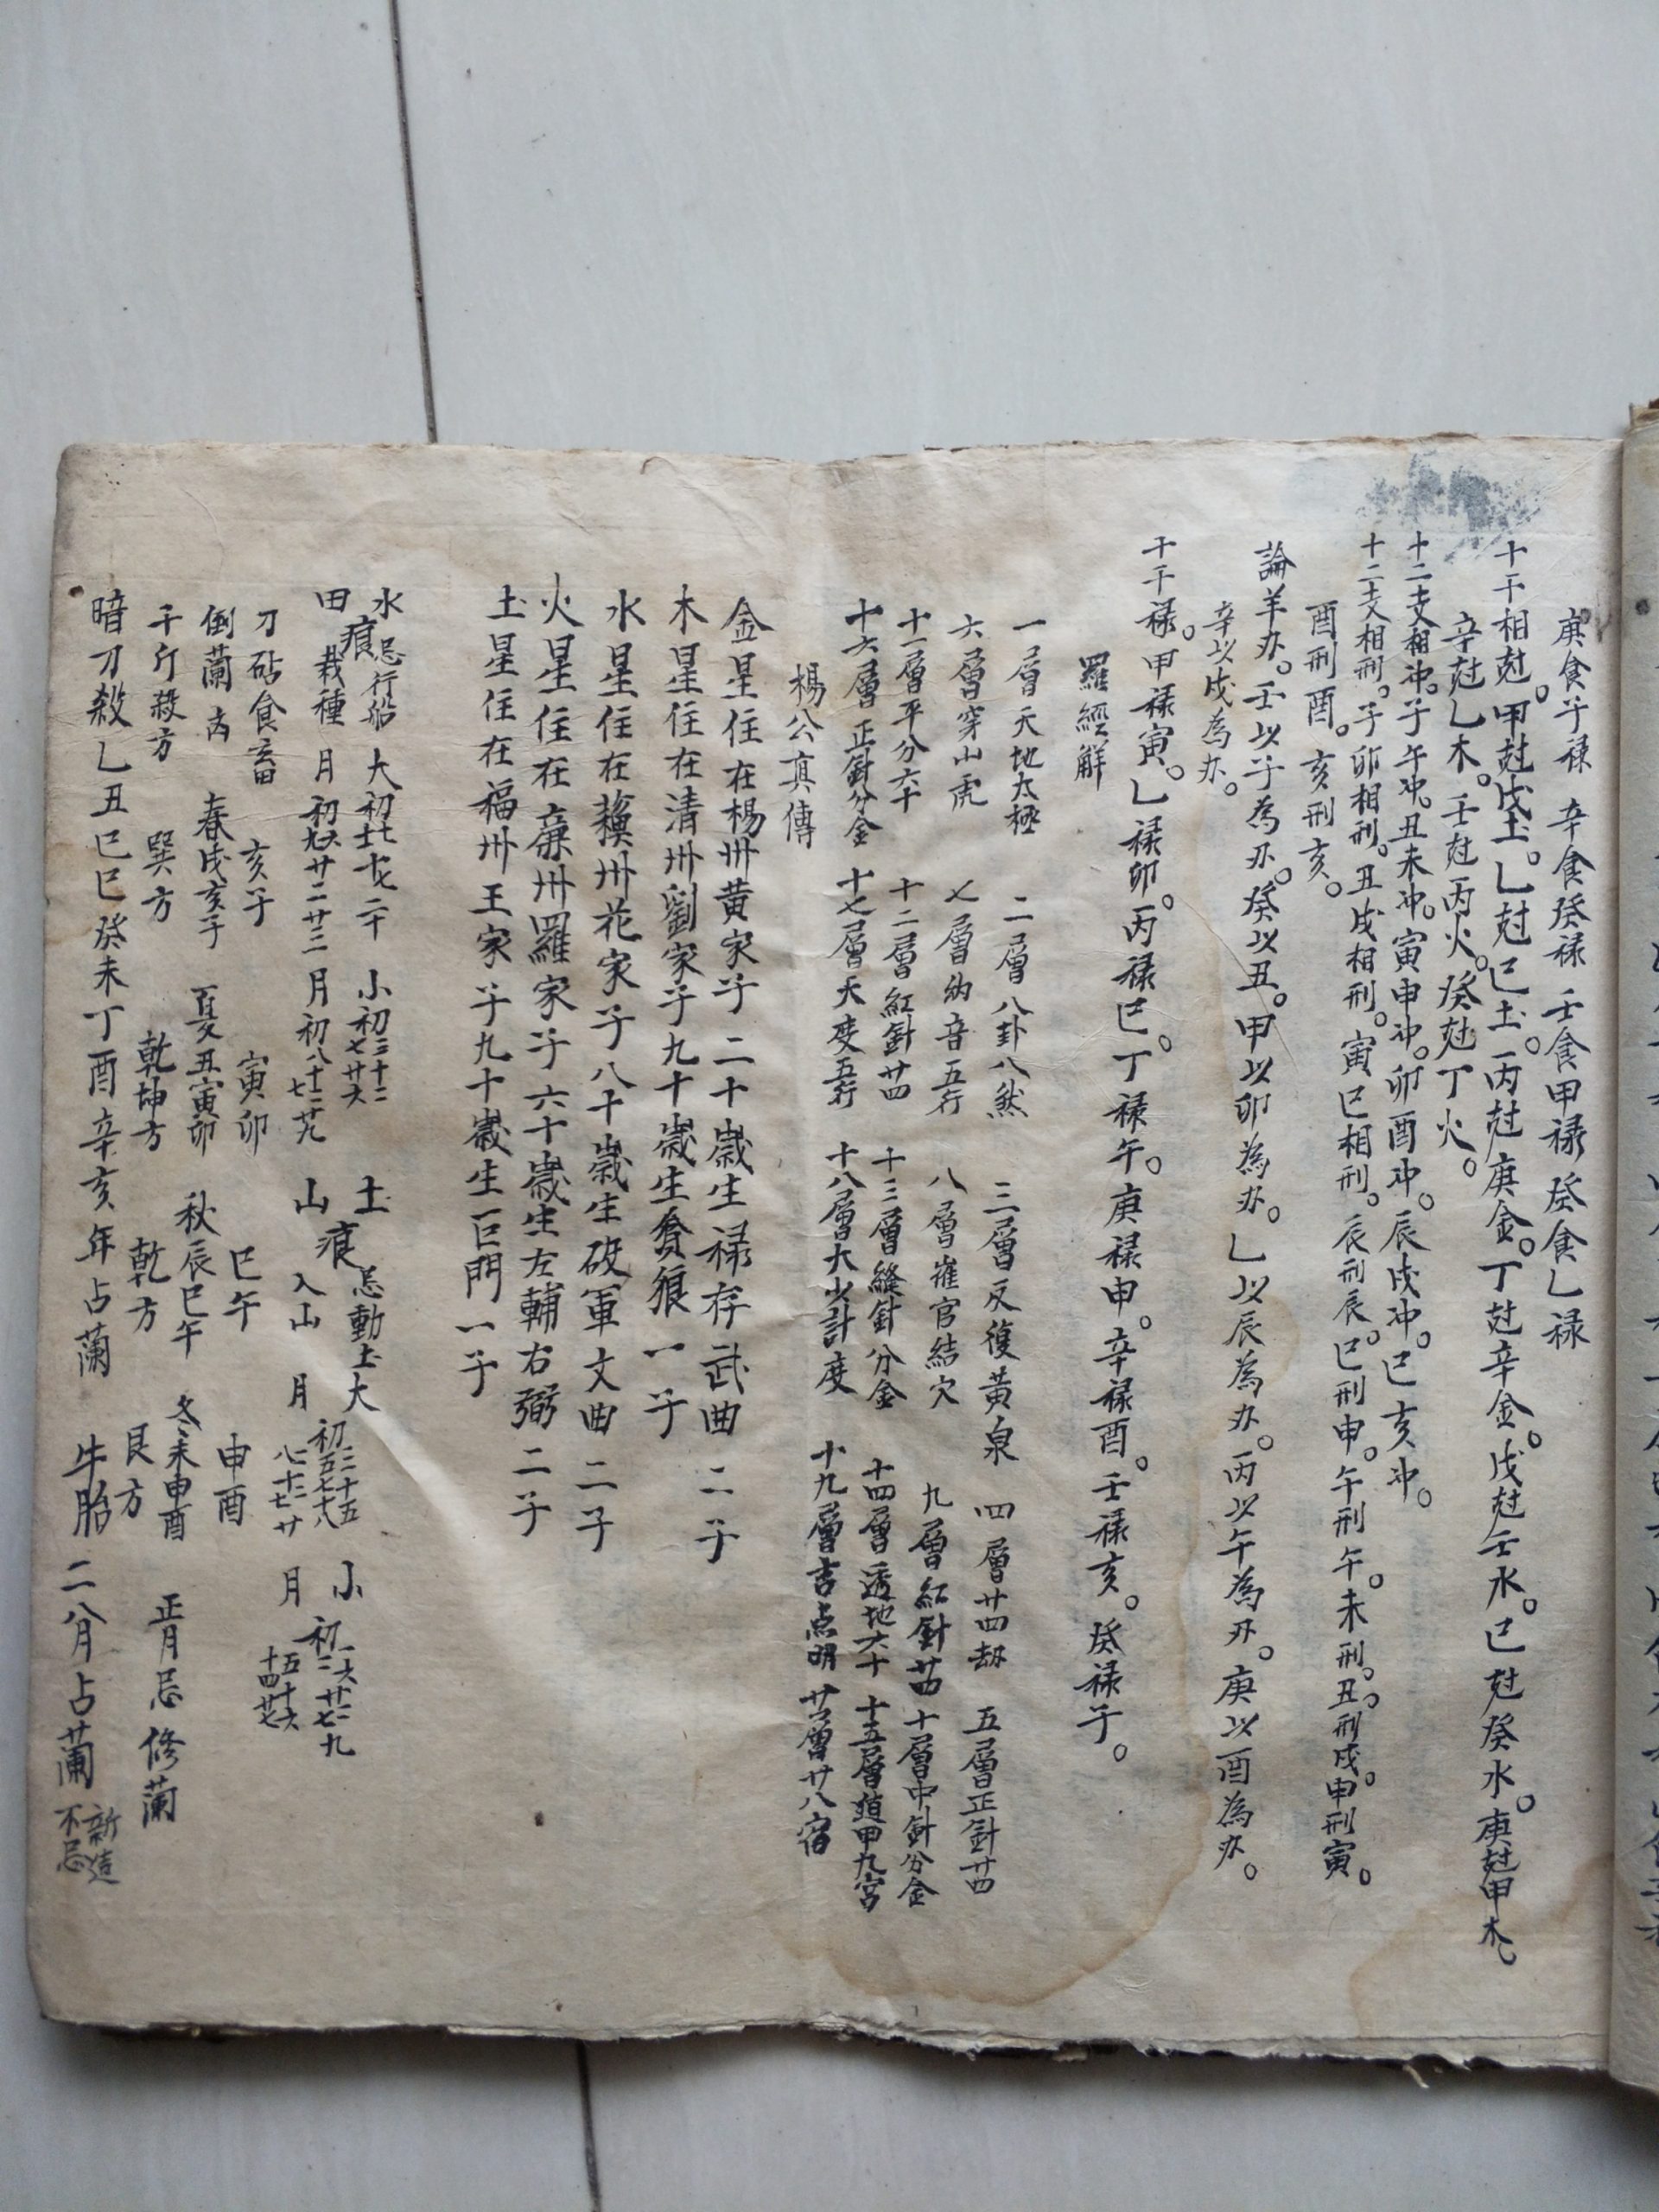 庚食子禄 辛食癸禄 壬食甲禄 癸食乙禄
十干相尅。甲尅戊土。乙尅己土。丙尅庚金。丁尅辛金。戊尅壬水。己尅癸水。庚尅甲木。
辛尅乙木。壬尅丙火。癸尅丁火。
十二支相冲。子午冲。丑未冲。寅申冲。卯酉冲。辰戌冲。巳亥冲。
十二支相刑。子卯相刑。丑戌相刑。寅巳相刑。辰刑辰。巳刑申。午刑午。未刑。丑。刑戌。申刑寅。
酉刑酉。亥刑亥。
論羊刃。壬以子為刃。癸以丑。甲以卯為刃。乙以辰為刃。丙以午為刃。庚以酉為刃。
辛以戌為刃。
十干禄。甲禄寅。乙禄卯。丙禄巳。丁禄午。庚禄申。辛禄酉。壬禄亥。癸禄子。
羅經解
一層天地太極 二層八卦八煞 三層反復黃泉 四層廿四劫 五層正針廿四
六層穿山虎 七層納音五行 八層崔官結穴 九層紅針廿四 十層中針分金
十一層平分六十 十二層紅針廿四 十三層縫針分金 十四層透地六十 十五層遁甲九宮
十六層正針分金 十七層天度五行 十八層大小計度 十九層吉点明 廿層廿八宿
楊公真傳
金星住在楊州黃家子二十歲生禄存武曲二子
木星住在清州劉家子九十歲生貪狼一子
水星住在蘓州花家子八十歲生破軍文曲二子
火星住在廉州羅家子六十歲生左輔右弼二子
土星住在福州王家子九十歲生巨門一子
水痕忌行船 大初七十七二十 小初三十二七廿六 土痕忌動土大
田栽種 月 廿二廿三 月初八十一七十九 山入山 月 小 月
刀砧食畜 亥子 寅卯 巳午 申酉
倒蘭 春戌亥子 夏丑寅卯 秋辰巳午 冬未申酉 正月忌修蘭
千斤殺方 巽方 乾坤方 乾方 艮方
暗刀殺乙丑己巳癸未丁酉辛亥年占蘭 牛胎二八月占蘭 新造不忌